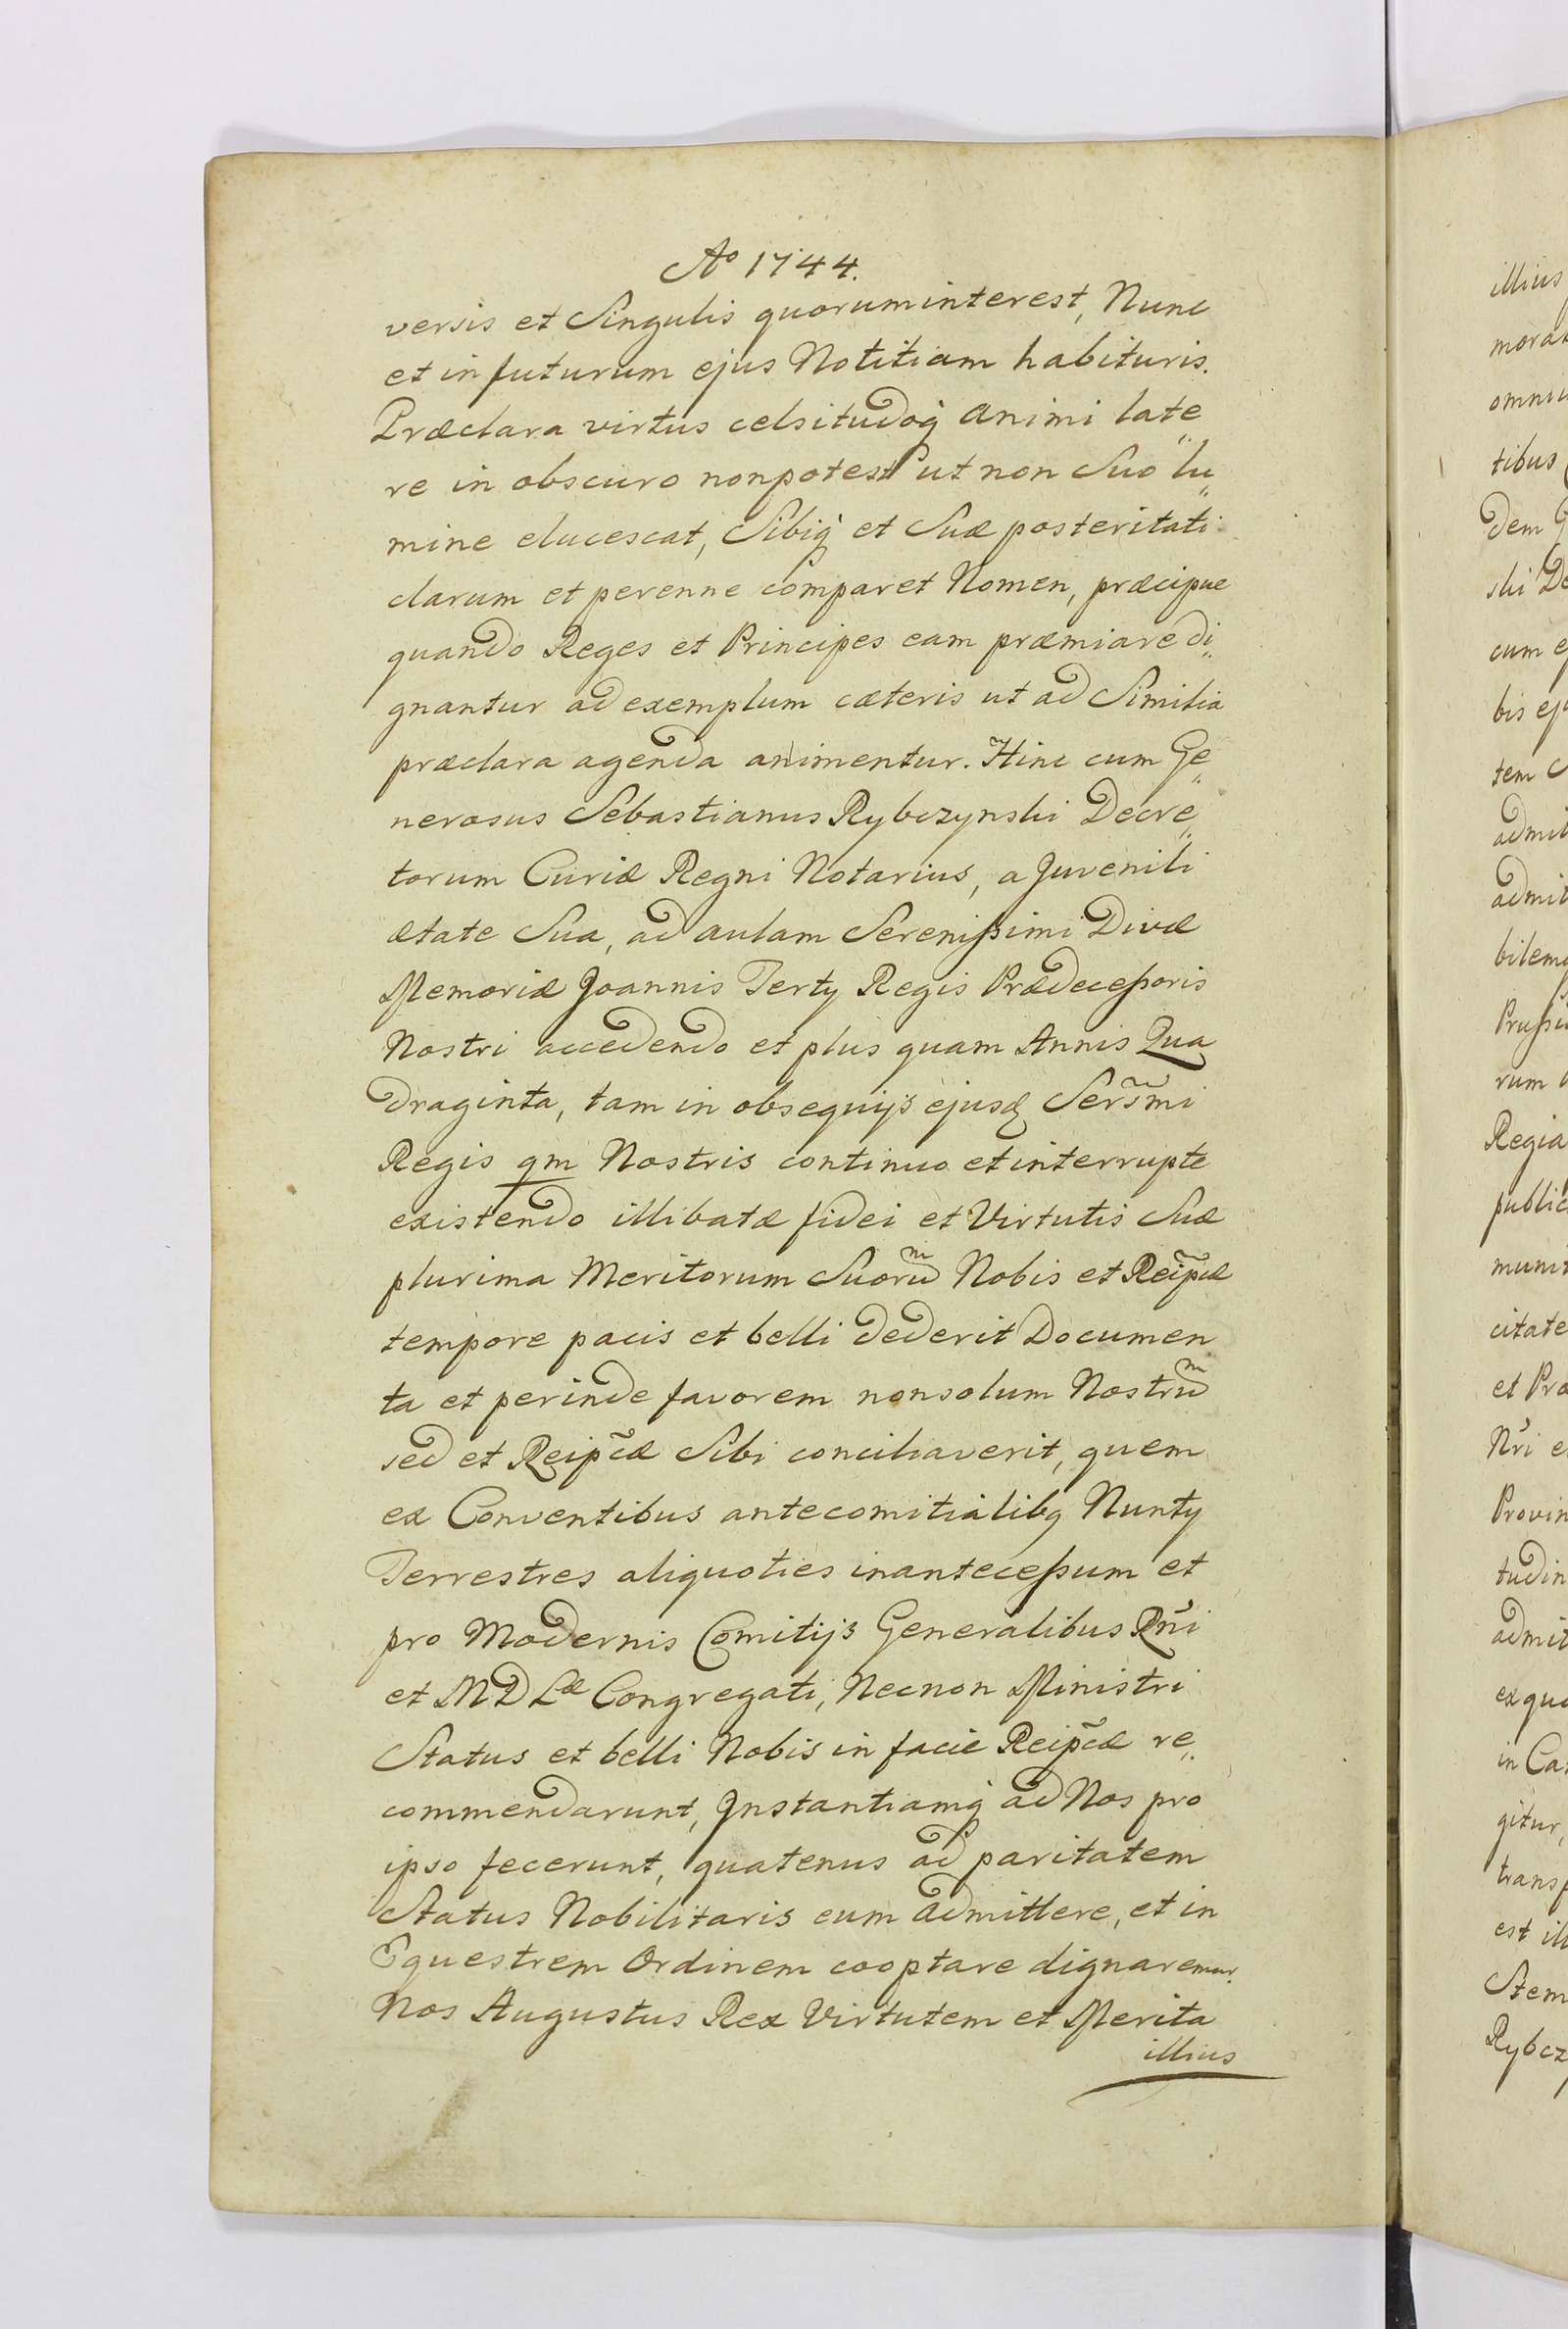 Ao 1744.
versis et Singulis quoruminterest, Nunc
et in futurum ejus Notitiam habituris.
Præclara virtus celsitudoq animi late„
re in obscuro nonpotest ut non Suo lu„
mine elucescat, Sibiq et Suæ posteritati
clarum et perenne comparet Nomen, præcipue
quando Reges et Principes eam præmiare di„
gnantur ad exemplum cæteris ut ad Similia
præclara agenda animentur. Hinc cum Ge„
nerosus Sebastianus Rybczynski Decre„
torum Curiæ Regni Notarius, a Juvenili
ætate Sua, ad aulam Serenißimi Divæ
Memoriæ Joannis Terty Regis Prædeceßoris
Nostri accedendo et plus quam Annis Qua
draginta, tam in obsequijs ejusq Serm̃i
Regis qm Nostris continuo et interrupte
existendo illibatæ fidei et Virtutis Suæ
plurima Meritorum Suorum Nobis et Reip̃cæ
tempore pacis et belli dederit Documen
ta et perinde favorem nonsolum Nostrum
sed et Reip̃cæ Sibi conciliaverit, quem
ex Conventibus antecomitialibq Nunty
Terrestres aliquoties inanteceßum et
pro Modernis Comitijs Generalibus Rñi
et M D Læ Congregati, Necnon Ministri
Status et belli Nobis in facie Reip̃cæ re„
commendarunt, Instantiamq ad Nos pro
ipso fecerunt, quatenus ad paritatem
Status Nobilitaris eum admittere, et in
Equestrem Ordinem cooptare dignaremur.
Nos Augustus Rex Virtutem et Merita
illius
illius
tibus
dem
cum
bis
tem
rum
Regia
citate
et
Nri
in
gitur,
est